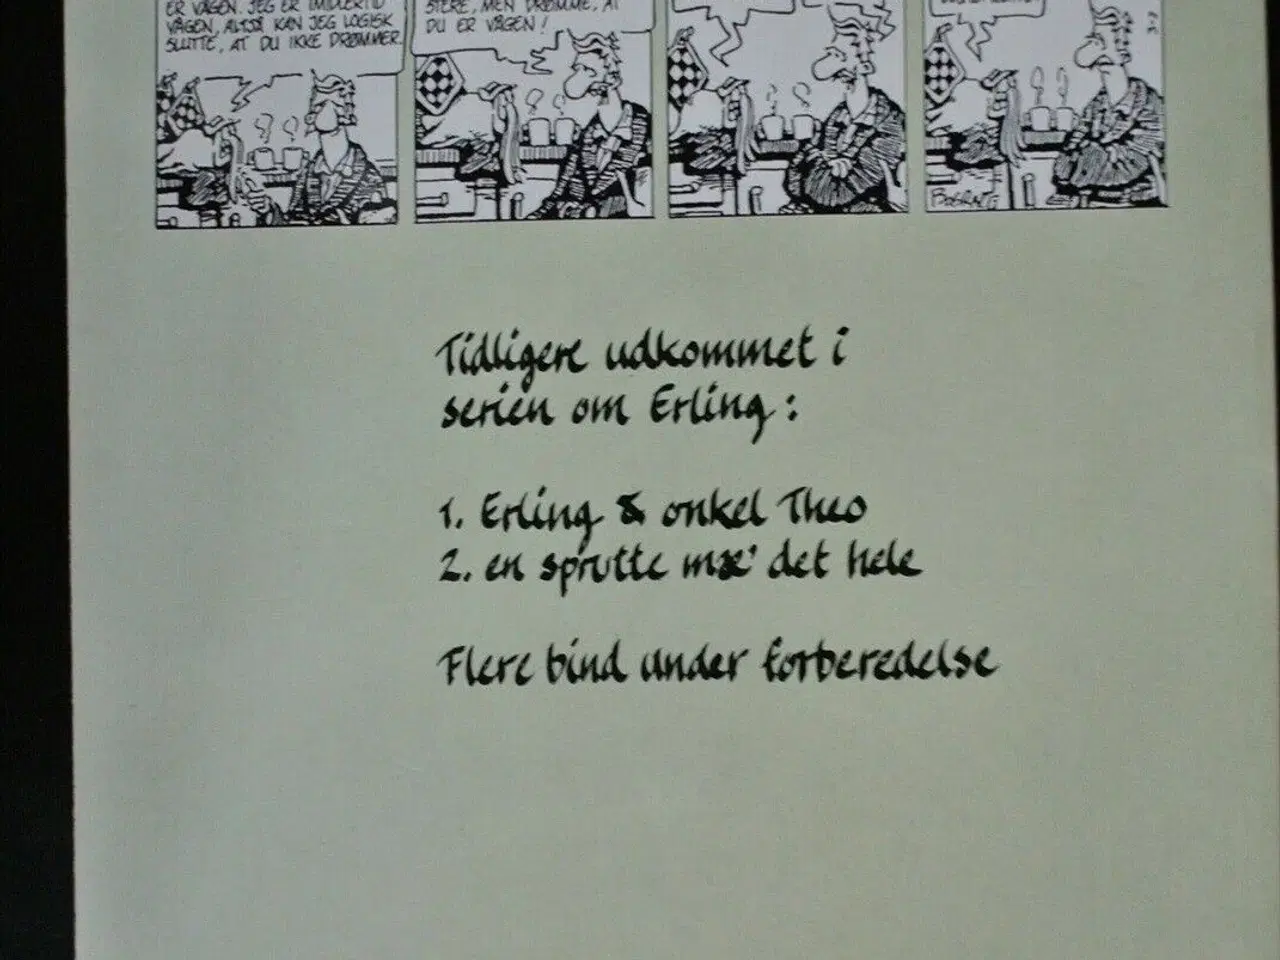 ER VÅGEN. JEG ER IMIDLERTID
VÅGEN, ALTSÅ KAN JEG LOGISK
SLUTTE, AT DU IKKE DRØMMER
STERE, MEN DRØMME, AT
DU ER VÅGEN!
3-2
Tidligere udkommet i
serien om Erling:
1. Erling & onkel Theo
2. en sprutte mæ' det hele
Flere bind under forberedelse